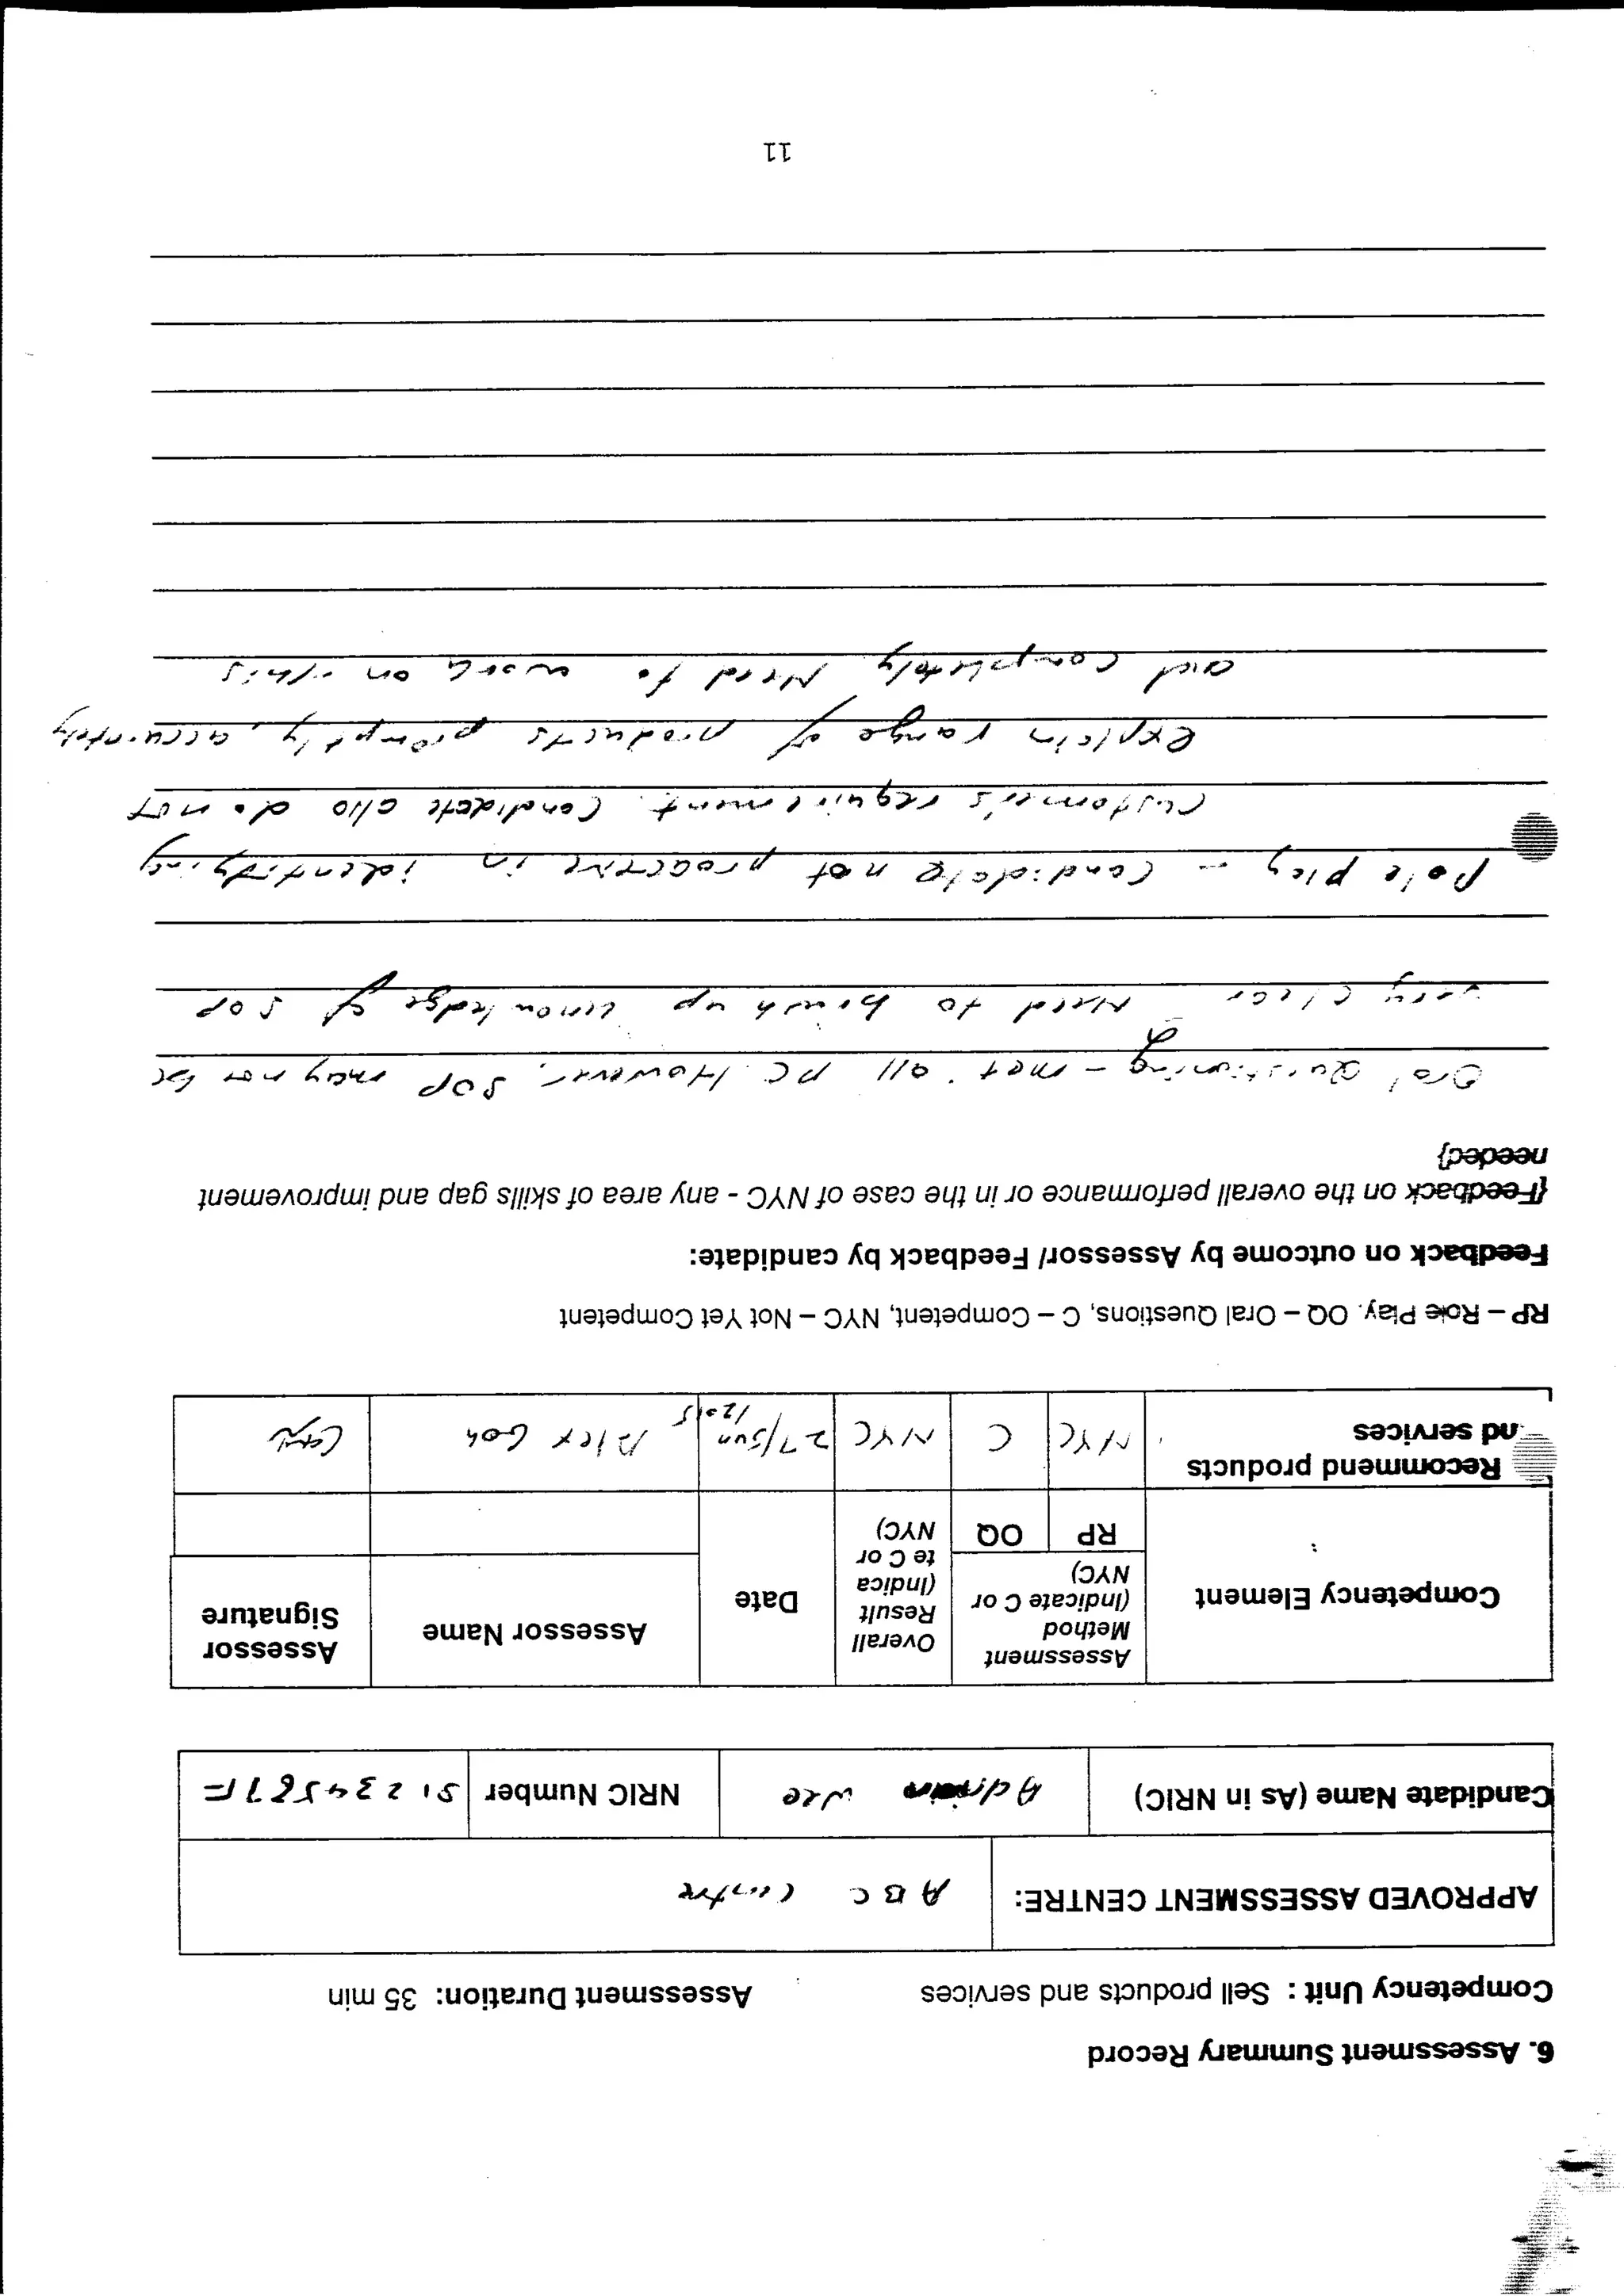 6. Assessment Summary Record
Competency Unit : Sell products and services Assessment Duration: 35 min
APPROVED ASSESSMENT CENTRE: ABC Centre
Candidate Name (As in NRIC) Wee NRIC Number
Competency Element
Assessment Method (Indicate C or NYC)
RP OQ
Overall Result (Indica te C or NYC)
Date
Assessor Name
Assessor Signature
Recommend products
nd services
NYC C NYC 27/Jun /2015 Alex Goh
RP – Role Play. OQ – Oral Questions, C – Competent, NYC – Not Yet Competent
Feedback on outcome by Assessor/ Feedback by candidate:
{Feedback on the overall performance or in the case of NYC - any area of skills gap and improvement
needed}
Oral Questioning - met all PC. However, SOP may not be
very clear Need to brush up knowledge of SOP
Role play - Candidate not proactive in identifying
customer's requirement. Candidate also do not
explain range of products promptly, accurately
and completely Need to work on this
11